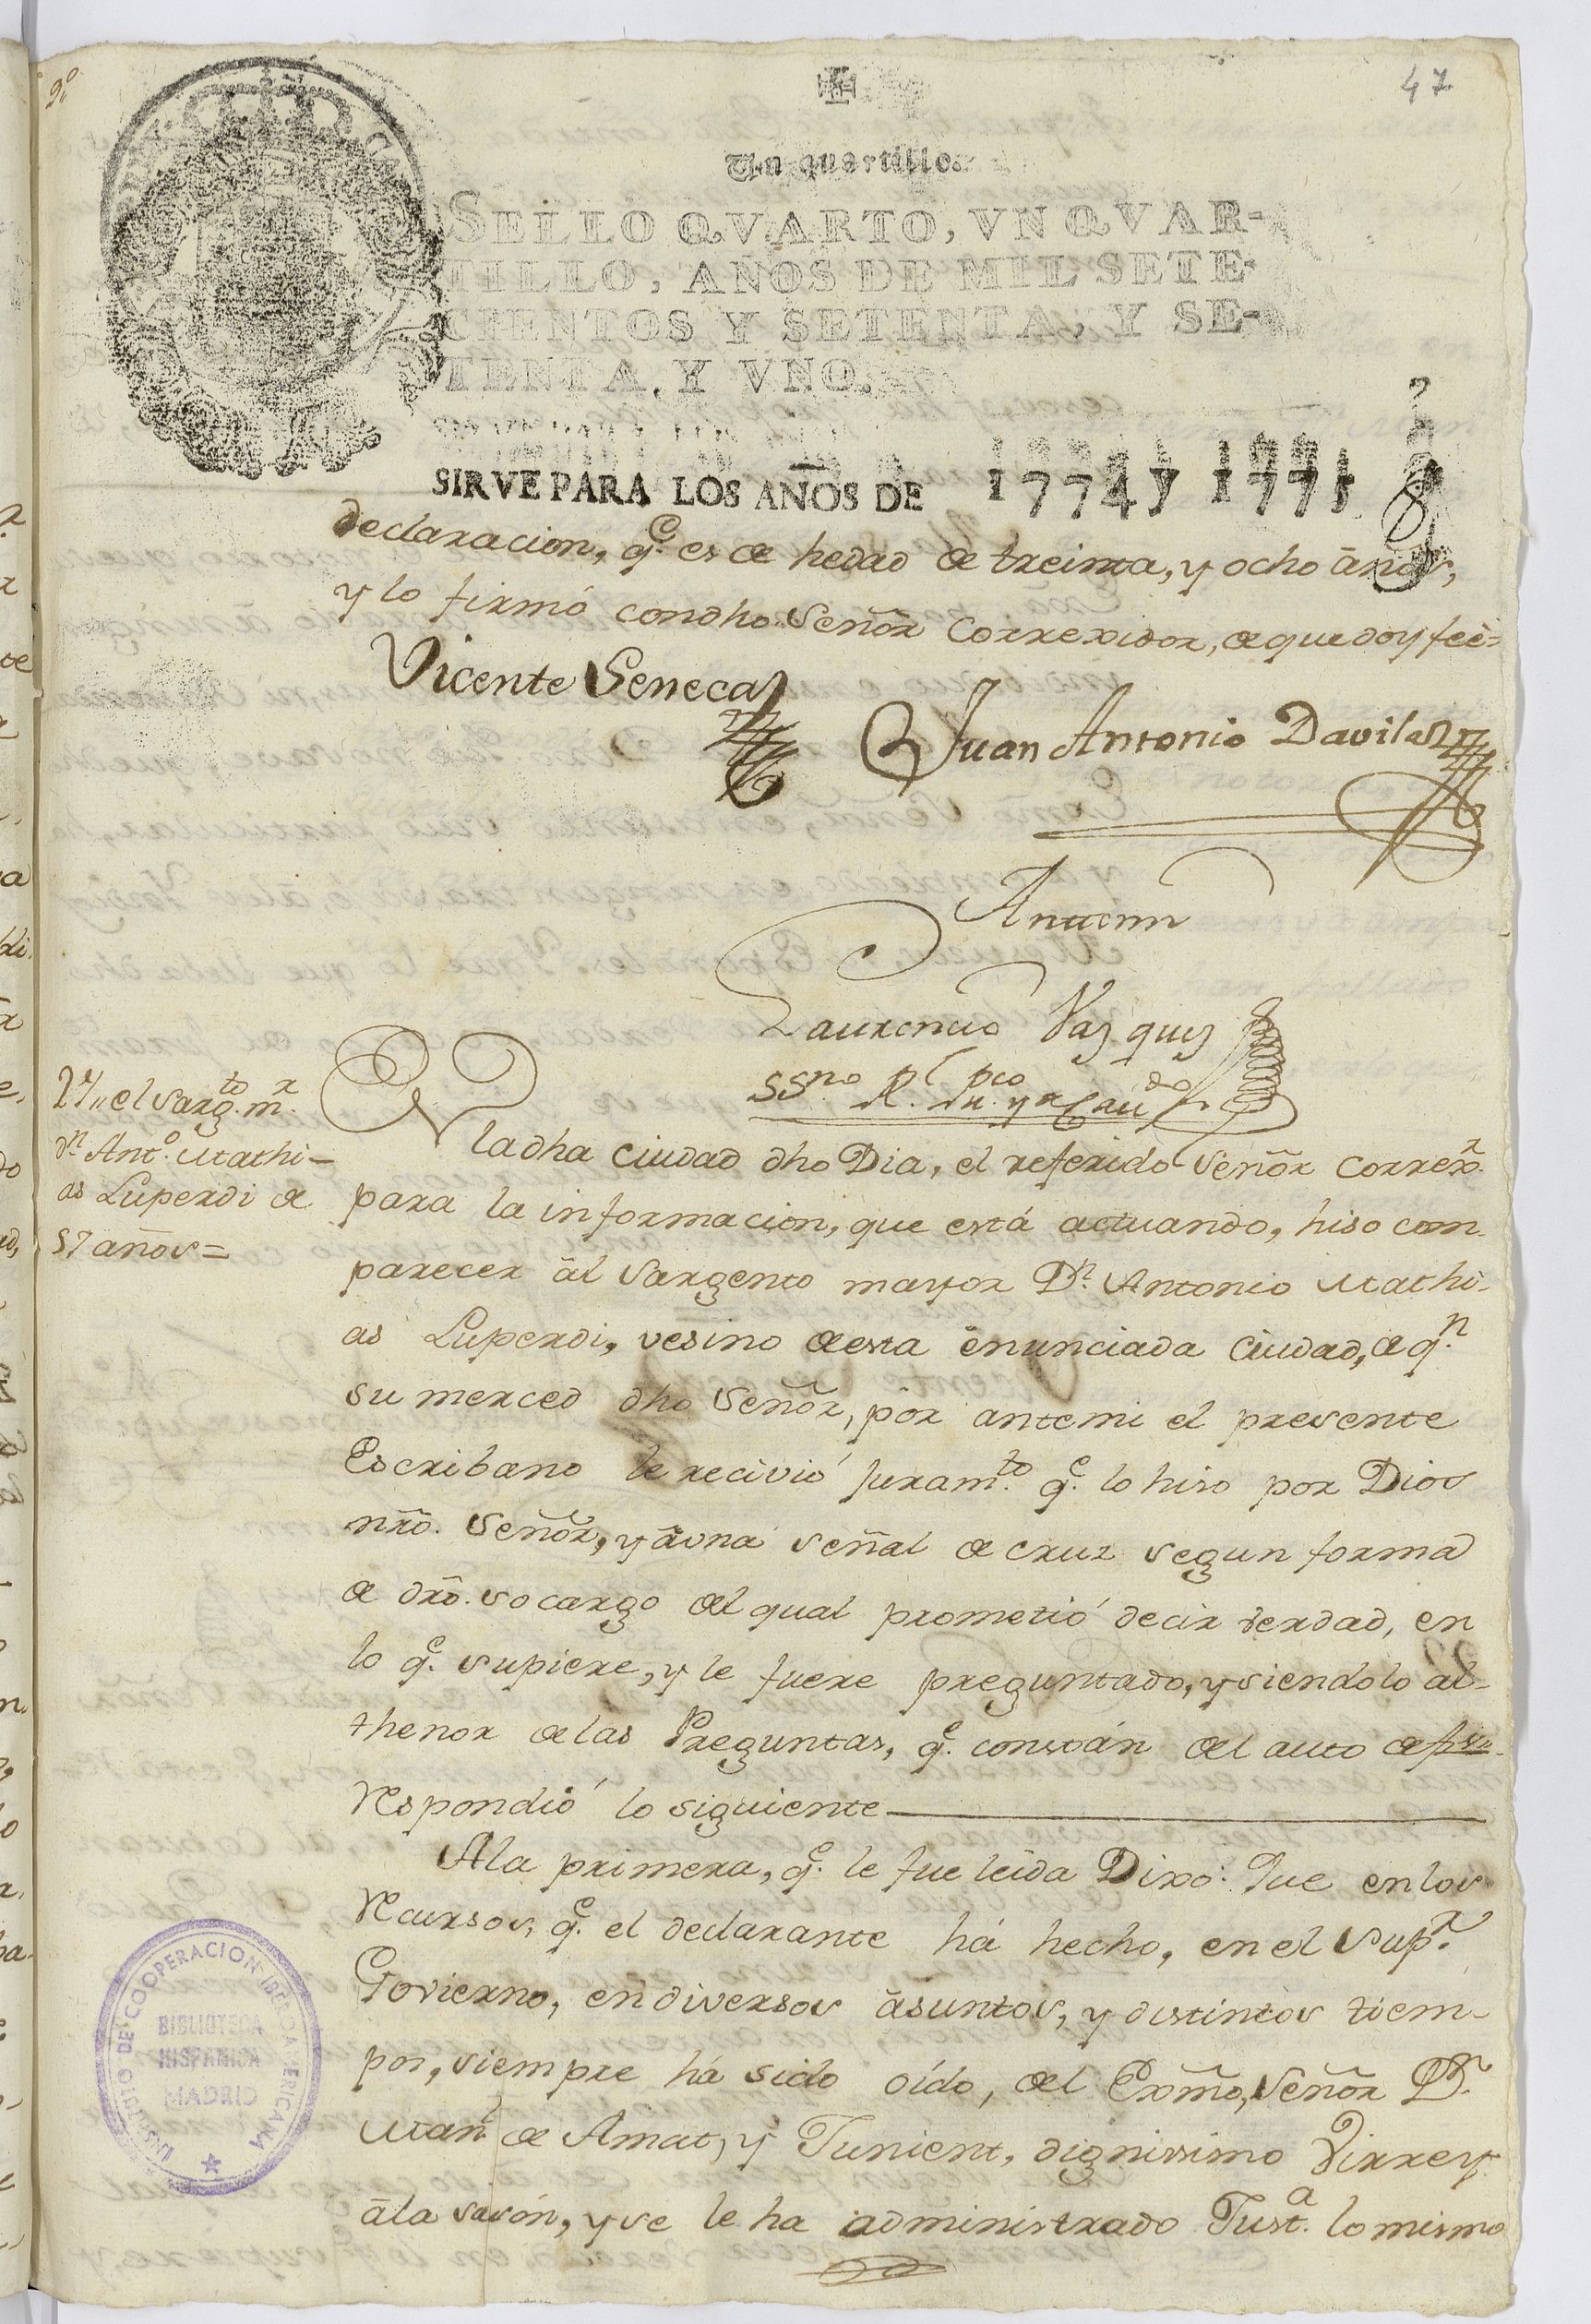 47
Un quartillo.
SELLO QVARTO, VN QVAR-
TILLO, AÑOS DE MIL SETE-
CIENTOS Y SETENTA, Y SE-
TENTA, Y VNO.
SIRVE PARA LOS AÑOS DE 1774 y 1775
declaracion, q.e es de hedad de treinta, y ocho ãnos,
y lo firmó con dho Señor Correxidor, de que doy feè=
Vicente Seneca
Juan Antonio Davila
Antemi
Laurencio Vazquez
SSno Rl pco
2º,, el Sarg.to m.r
Dn. Ant.o Mathi-
as Luperdi de
57 años=
En la dha Ciudad dho Dia, el referido Señor Correx.r
para la informacion, que está actuando, hiso com-
parecer ãl Sargento mayor Dn. Antonio Mathi-
as Luperdi, vesino de esta ènunciada Ciudad, de q.n
su merced dho Señor, pòr ante mi el presente
Escribano le recivió juram.to q.e lo hiso por Dios
nr̃o. Señor, y ãuna señal de cruz segun forma
de dr̃o. so cargo del qual prometió decir verdad, en
lo q.e supiere, y le fuere preguntado, y siendolo al-
thenor de las Preguntas, q.e constán del auto de
respondió lo siguiente
A la primera, q.e le fue leida Dixo: Que en los
recursos, q.e el declarante há hecho, en el Sup.r
Govierno, en diversos ãsuntos, y distintos tiem-
pos, siempre há sido oído, del Exmo, Señor Dn.
Man.l de Amat, y Junient, dignissimo Virrey
ãla sasón, y se le ha administrado Just.a lo mismo
INSTITUTO DE COOPERACION IBEROAMERICANA
BIBLIOTECA
HISPANICA
MADRID